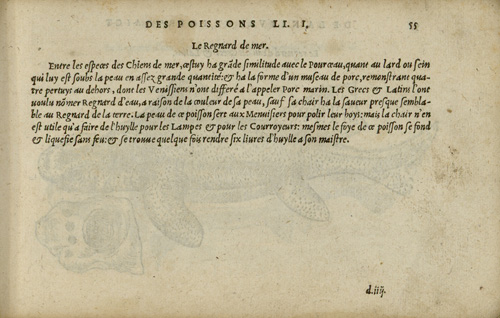 DES POISSONS LI. I. 55
Le Regnard de mer.
Entre les especes des Chiens de mer, cestuy ha grāde similitude avec le Pourceau, quant au lard ou sein
qui luy est soubs la peau en assez grande quantité: & ha la forme d'un museau de porc, remonstrant qua-
tre pertuys au dehors, dont les Venissiens n'ont differé a l'appeler Porc marin. Les Grecs & Latins l'ont
uoulu nōmer Regnard d'eau, a raison de la couleur de sa peau, sauf sa chair ha la saueur presque sembla-
ble au Regnard de la terre. La peau de ce poisson sert aux Menuisiers pour polir leur boys: mais la chair n'en
est utile qu'a faire de l'huylle pour les Lampes & pour les Courroyeurs: mesmes le foye de ce poisson se fond
& liquefie sans feu: & se trouue quelque fois rendre six liures d'huylle a son maistre.
d.iiij.